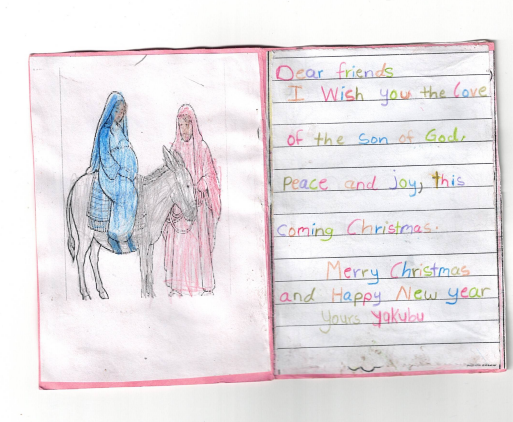 Dear friends
I Wish you the Love
of the son of God,
Peace and joy, this
coming Christmas.
Merry Christmas
and Happy New year
yours yakubu